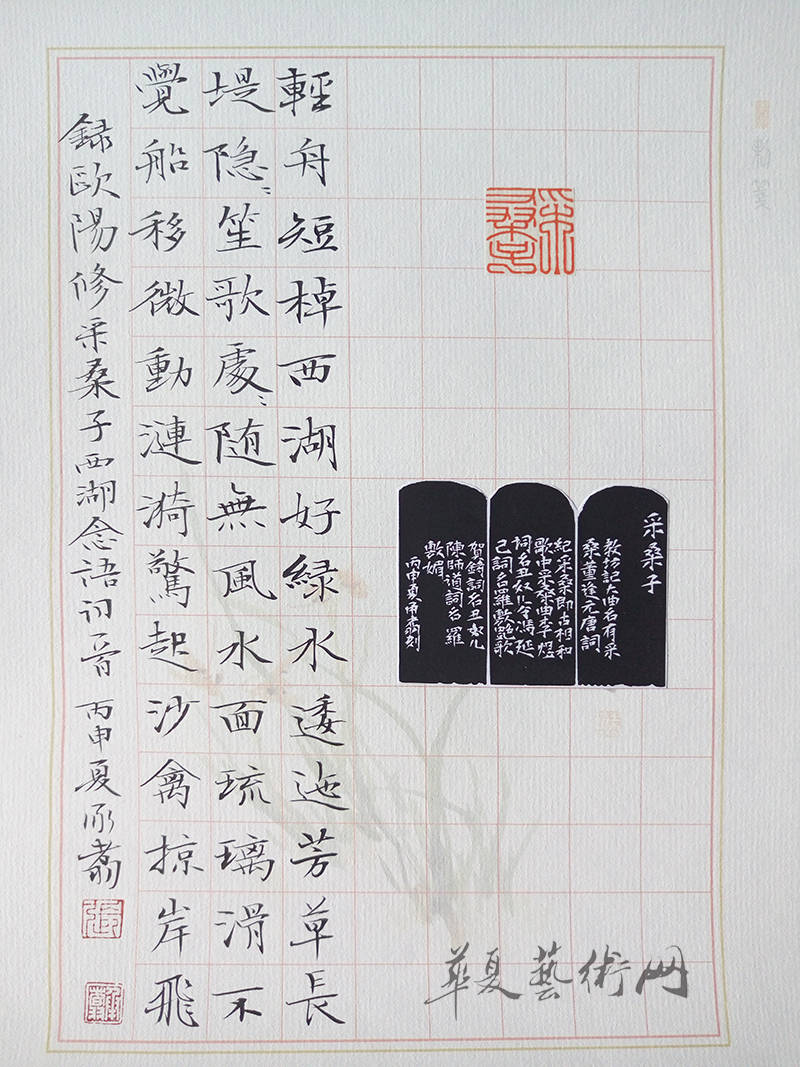 采桑子
采桑子
教坊記大曲名有采
桑董逢元唐詞
紀采桑即古相和
歌中采桑曲李煜
詞名丑奴儿令馮延
己詞名羅敷艷歌
賀鑄詞名丑奴儿
陳師道詞名羅
敷媚
丙申夏承翥刻
輕舟短棹西湖好緑水逶迤芳草長
堤隐〻笙歌處〻随無風水面琉璃滑不
覺船移微動漣漪驚起沙禽掠岸飛
録歐陽修采桑子西湖念語初音 丙申夏承翥
華夏藝術网